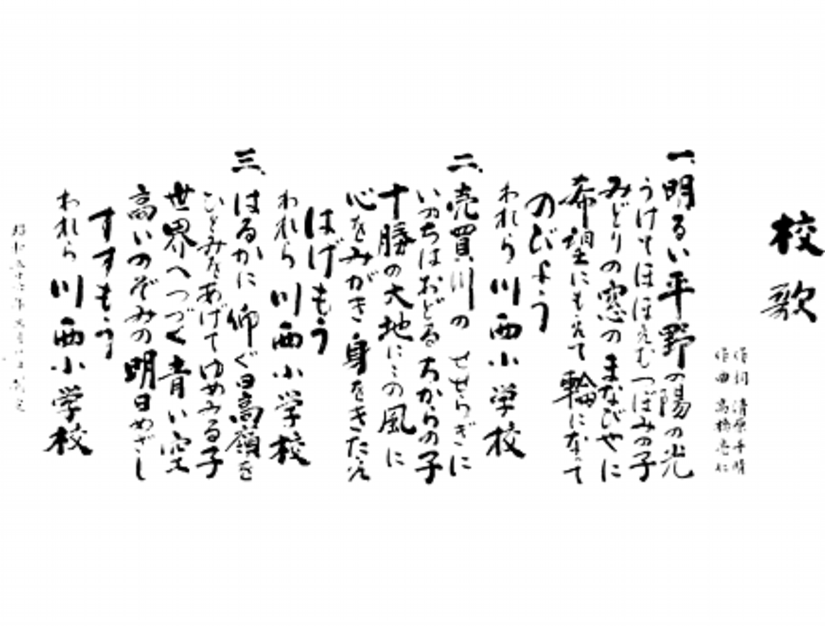 校歌
作詞 清原千晴
作曲 高橋
一、明るい平野の陽の光
うけてほほえむつぼみの子
みどりの窓のまなびやに
希望にもえて輪になって
のびよう
われら川西小学校
二、売買川のせせらぎに
いのちはおどるちからの子
十勝の大地にこの風に
心をみがき身をきたえ
はげもう
われら川西小学校
三、はるかに仰ぐ日高嶺を
ひとみをあげてゆめみる子
世界へつづく青い空
高いのぞみの明日めざし
すすもう
われら川西小学校
昭和五十